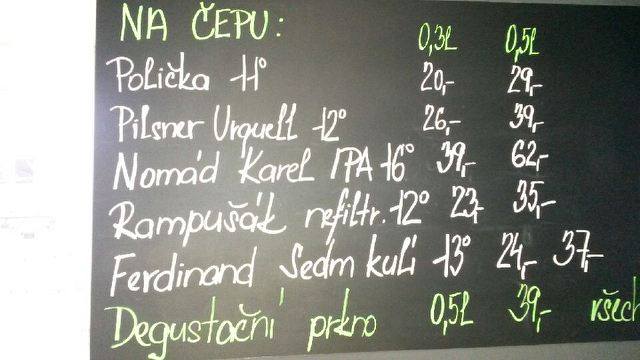 NA ČEPU: 0,3l 0,5l
Polička 11° 20,- 29,-
Pilsner Urquell 12° 26,- 39,-
Nomád Karel IPA 16° 39,- 62,-
Rampušák nefiltr. 12° 23,- 35,-
Ferdinand Sedm kulí 13° 24,- 37,-
Degustační prkno 0,5l 39,- všech